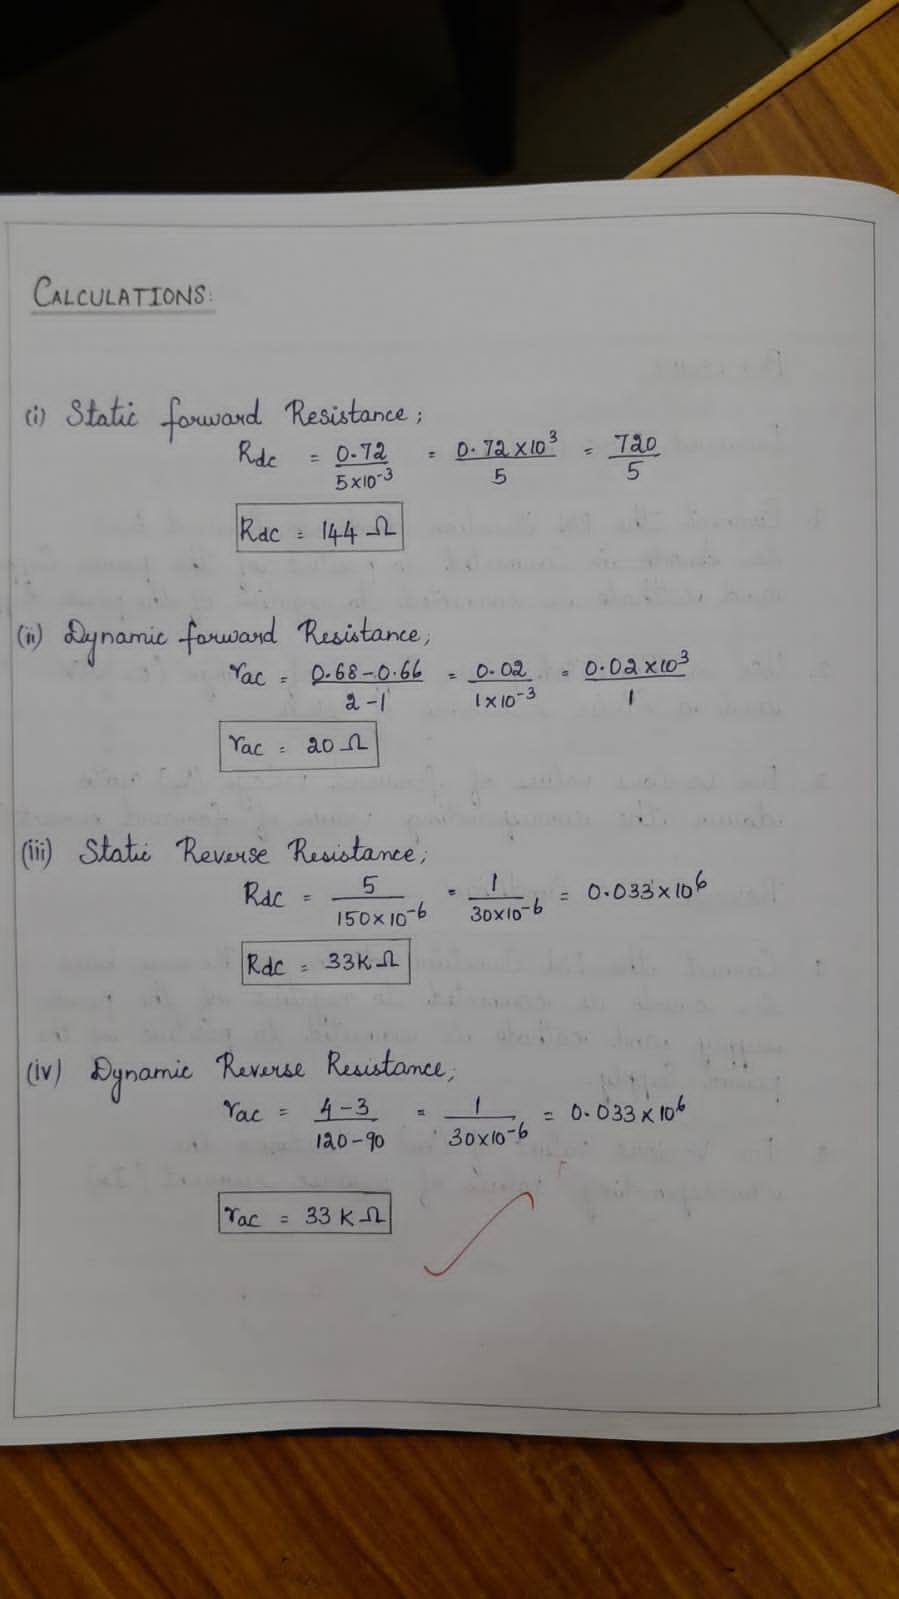 CALCULATIONS:
(i) Static forward Resistance;
Rdc = 0.72 / 5×10⁻³ = 0.72×10³ / 5 = 720 / 5
Rdc = 144 Ω
(ii) Dynamic forward Resistance;
rac = 0.68-0.66 / 2-1 = 0.02 / 1×10⁻³ = 0.02×10³ / 1
rac = 20 Ω
(iii) Static Reverse Resistance;
Rdc = 5 / 150×10⁻⁶ = 1 / 30×10⁻⁶ = 0.033×10⁶
Rdc = 33K Ω
(iv) Dynamic Reverse Resistance;
rac = 4-3 / 120-90 = 1 / 30×10⁻⁶ = 0.033×10⁶
rac = 33 K Ω